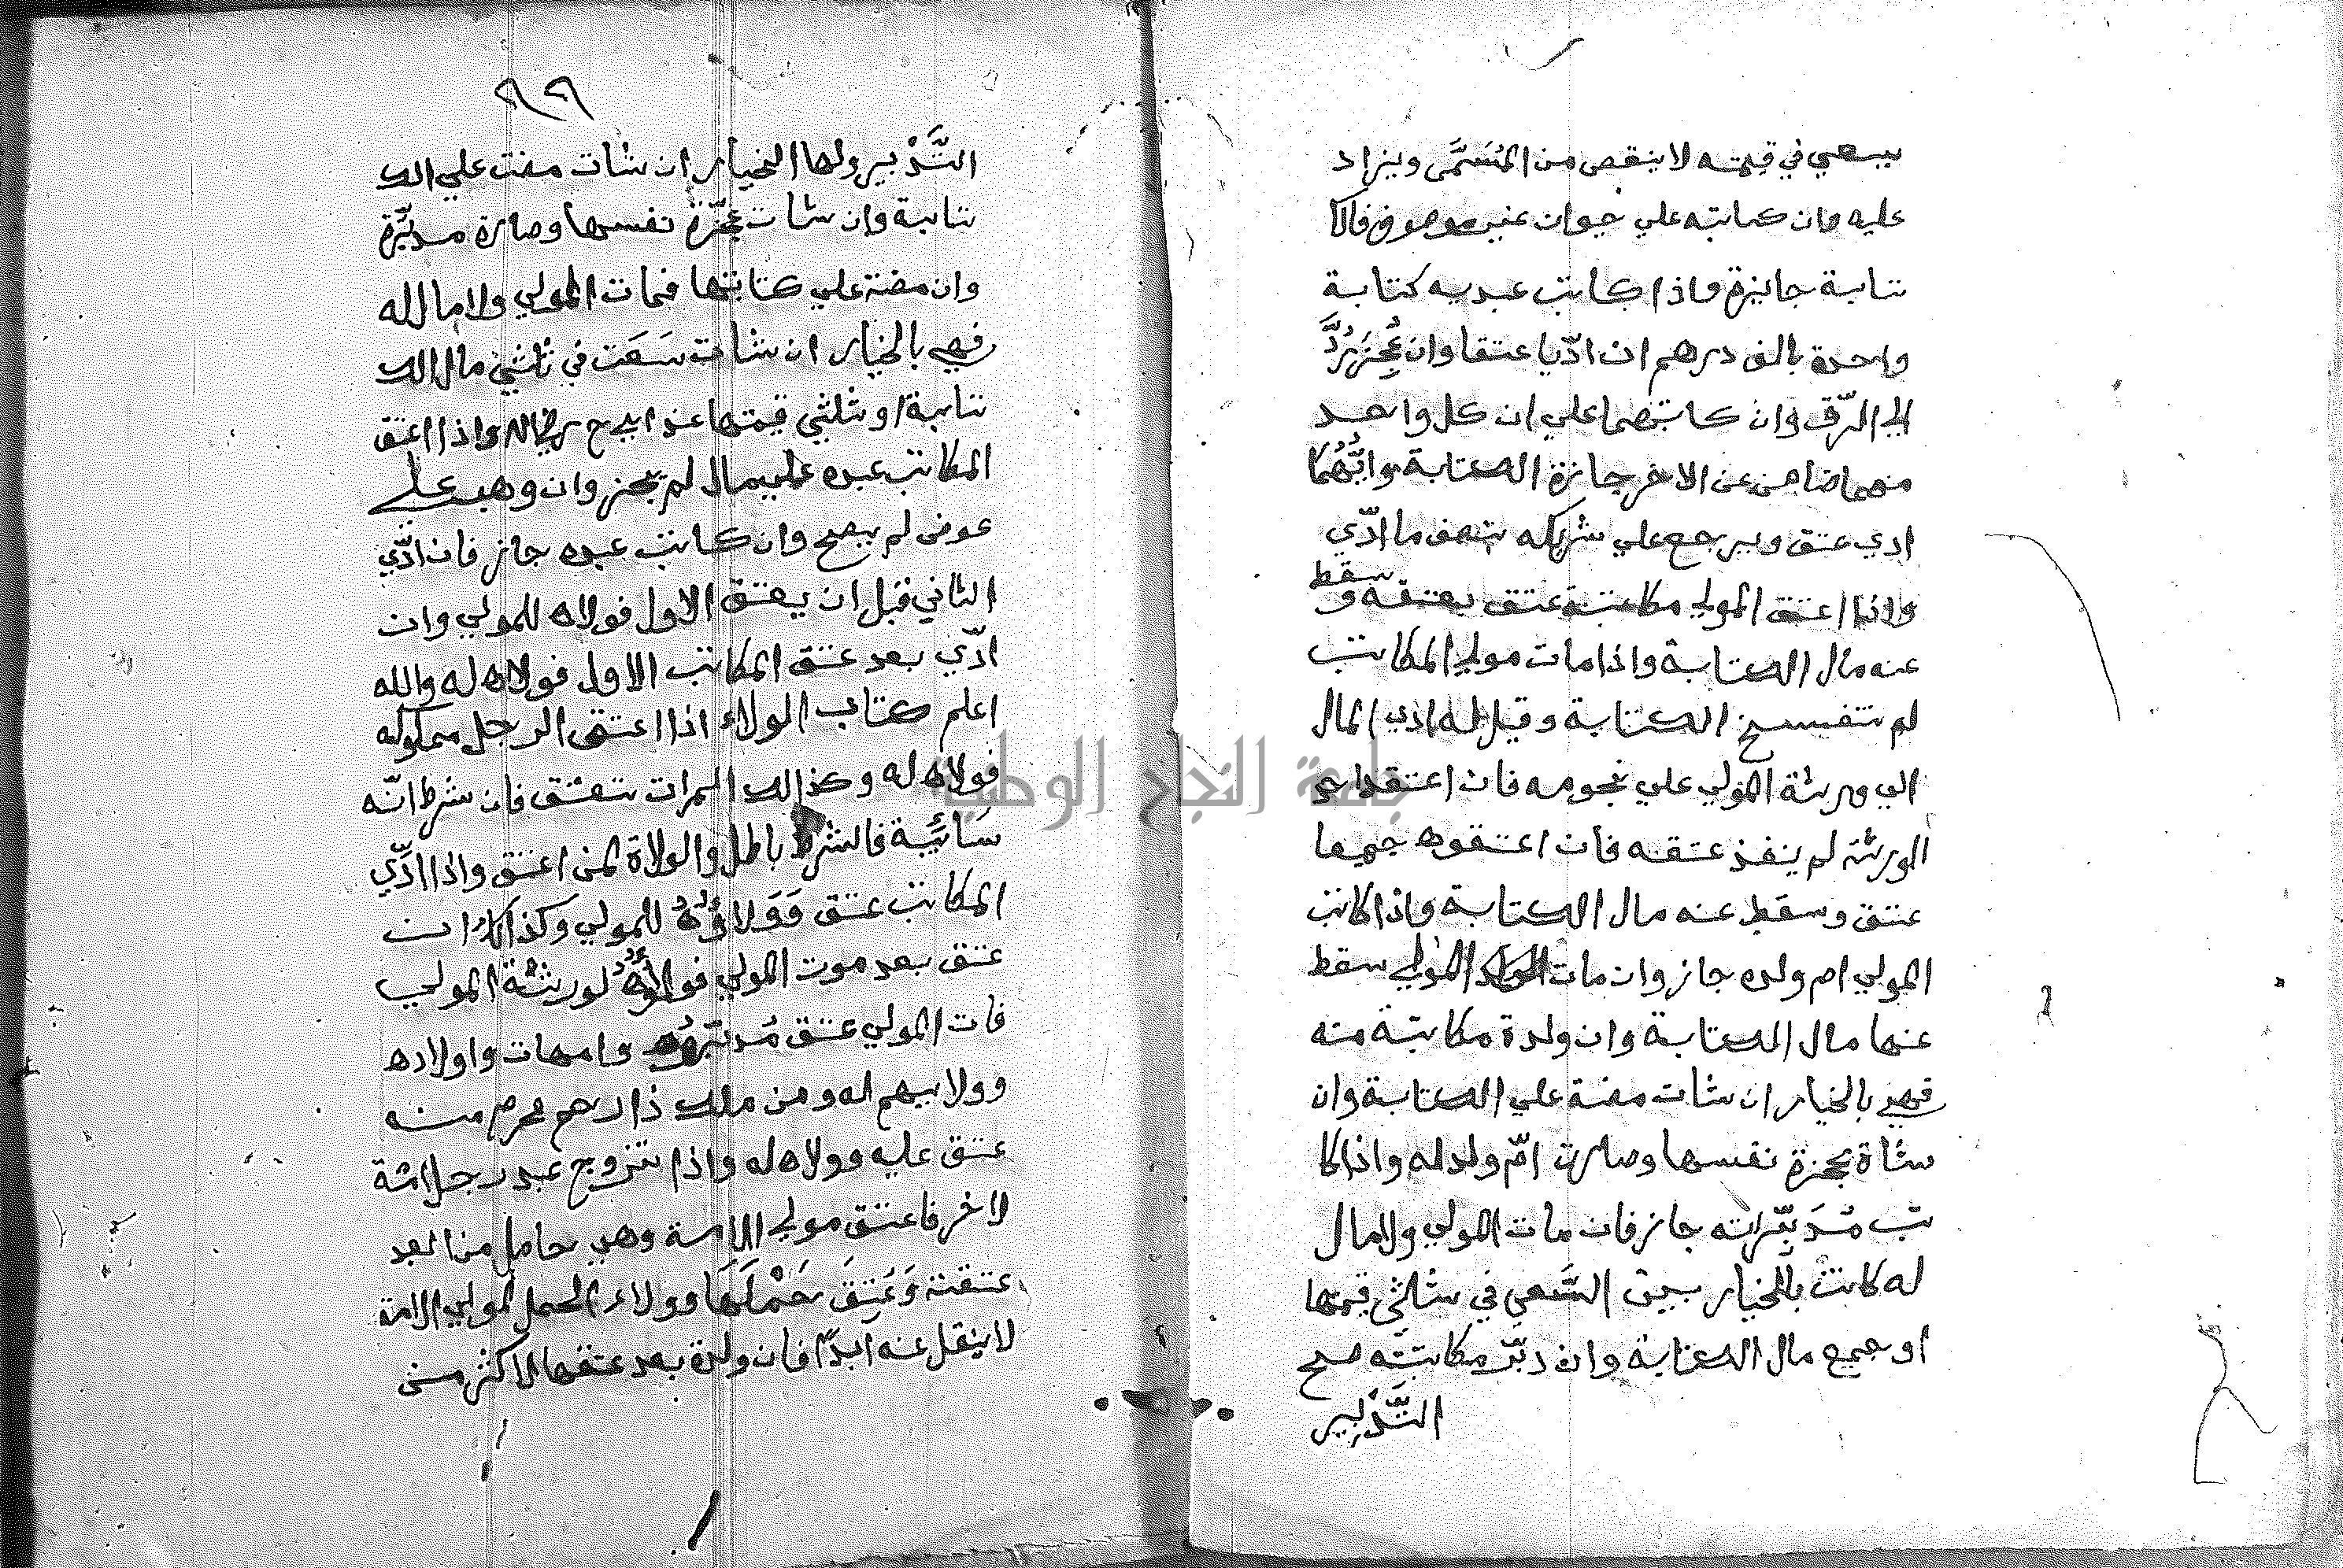 يسعي في قيمته لا ينقص من المُسَمَّى ويزاد
عليه وان كاتبه علي حيوان غير موصوف فالكا
تابة جايزة واذا كاتب عبديه كتابة
واحدة بالف درهم ان ادّيا عتقا وان عُجِزَ رُدَّ
الي الرّق وان كاتبهما علي ان كل واحد
منهما ضامن عن الاخر جازة الكتابة وايُّهُمَا
ادي عتق ويرجع علي شريكه بنصف ما ادّي
واذا اعتق المولي مكاتبته عتق بعتقه وسقط
عنه مال الكتابة واذا مات مولي المكاتب
لم تنفسخ الكتابة وقيل له ادي المال
الي ورثة المولي علي نجومه فان اعتقه احد
الورثة لم ينفذ عتقه فان اعتقوه جميعا
عتق وسقط عنه مال الكتابة واذا كاتب
المولي ام ولده جاز وان مات المولي سقط
عنها مال الكتابة وان ولدة مكاتبة منه
فهي بالخيار ان شات مضة علي الكتابة وان
شاة عجزة نفسها وصارت امّ ولد له واذا كا
تب مُدَبَّرته جاز فان مات المولي ولا مال
له كانت بالخيار بين السَّعي في ثلثي قيمتها
او جميع مال الكتابة وان دبّر مكاتبته صح
التَّدْبِير
٩٩
التَّدْبير ولها الخيار ان شات مضت علي الك
تابة وان شات عجّزة نفسها وصارة مدبَّرة
وان مضة علي كتابتها فمات المولي ولا مال له
فهي بالخيار ان شات سَعَت في ثلثي مال الك
تابة او ثلثي قيمتها عند ابي ح واذا اعتق
المكاتب عبده علي مال لم يجز وان وهب علي
عوض لم يصح وان كاتب عبده جاز فان ادّي
الثاني قبل ان يعتق الاول فولاه للمولي وان
ادّي بعد عتق المكاتب الاول فولاه له والله
اعلم كتاب الولاء اذا اعتق الرجل مملوكه
فولاه له وكذالك المرات تعتق فان شرط انّه
سَائِبَة فالشرط باطل والولاة لمن اعتق واذا ادَّي
المكاتب عتق وَوَلاؤُهُ للمولي وكذالك ان
عتق بعد موت المولي فولاؤُهُ لورثة المولي
فات المولي عتق مُدبّروه وامهات واولاده
وولايهم له ومن ملك ذا رحم محرم منه
عتق عليه وولاه له واذا تزوج عبد رجل امة
لاخر فاعتق مولي الامة وهي حامل من العبد
عتقة وَعَتِقَ حَمْلَهَا وولاء الحمل لمولي الامة
لا ينقل عنه ابدًا فان ولدة بعد عتقها لاكثر من
جامعة النجاح الوطنية